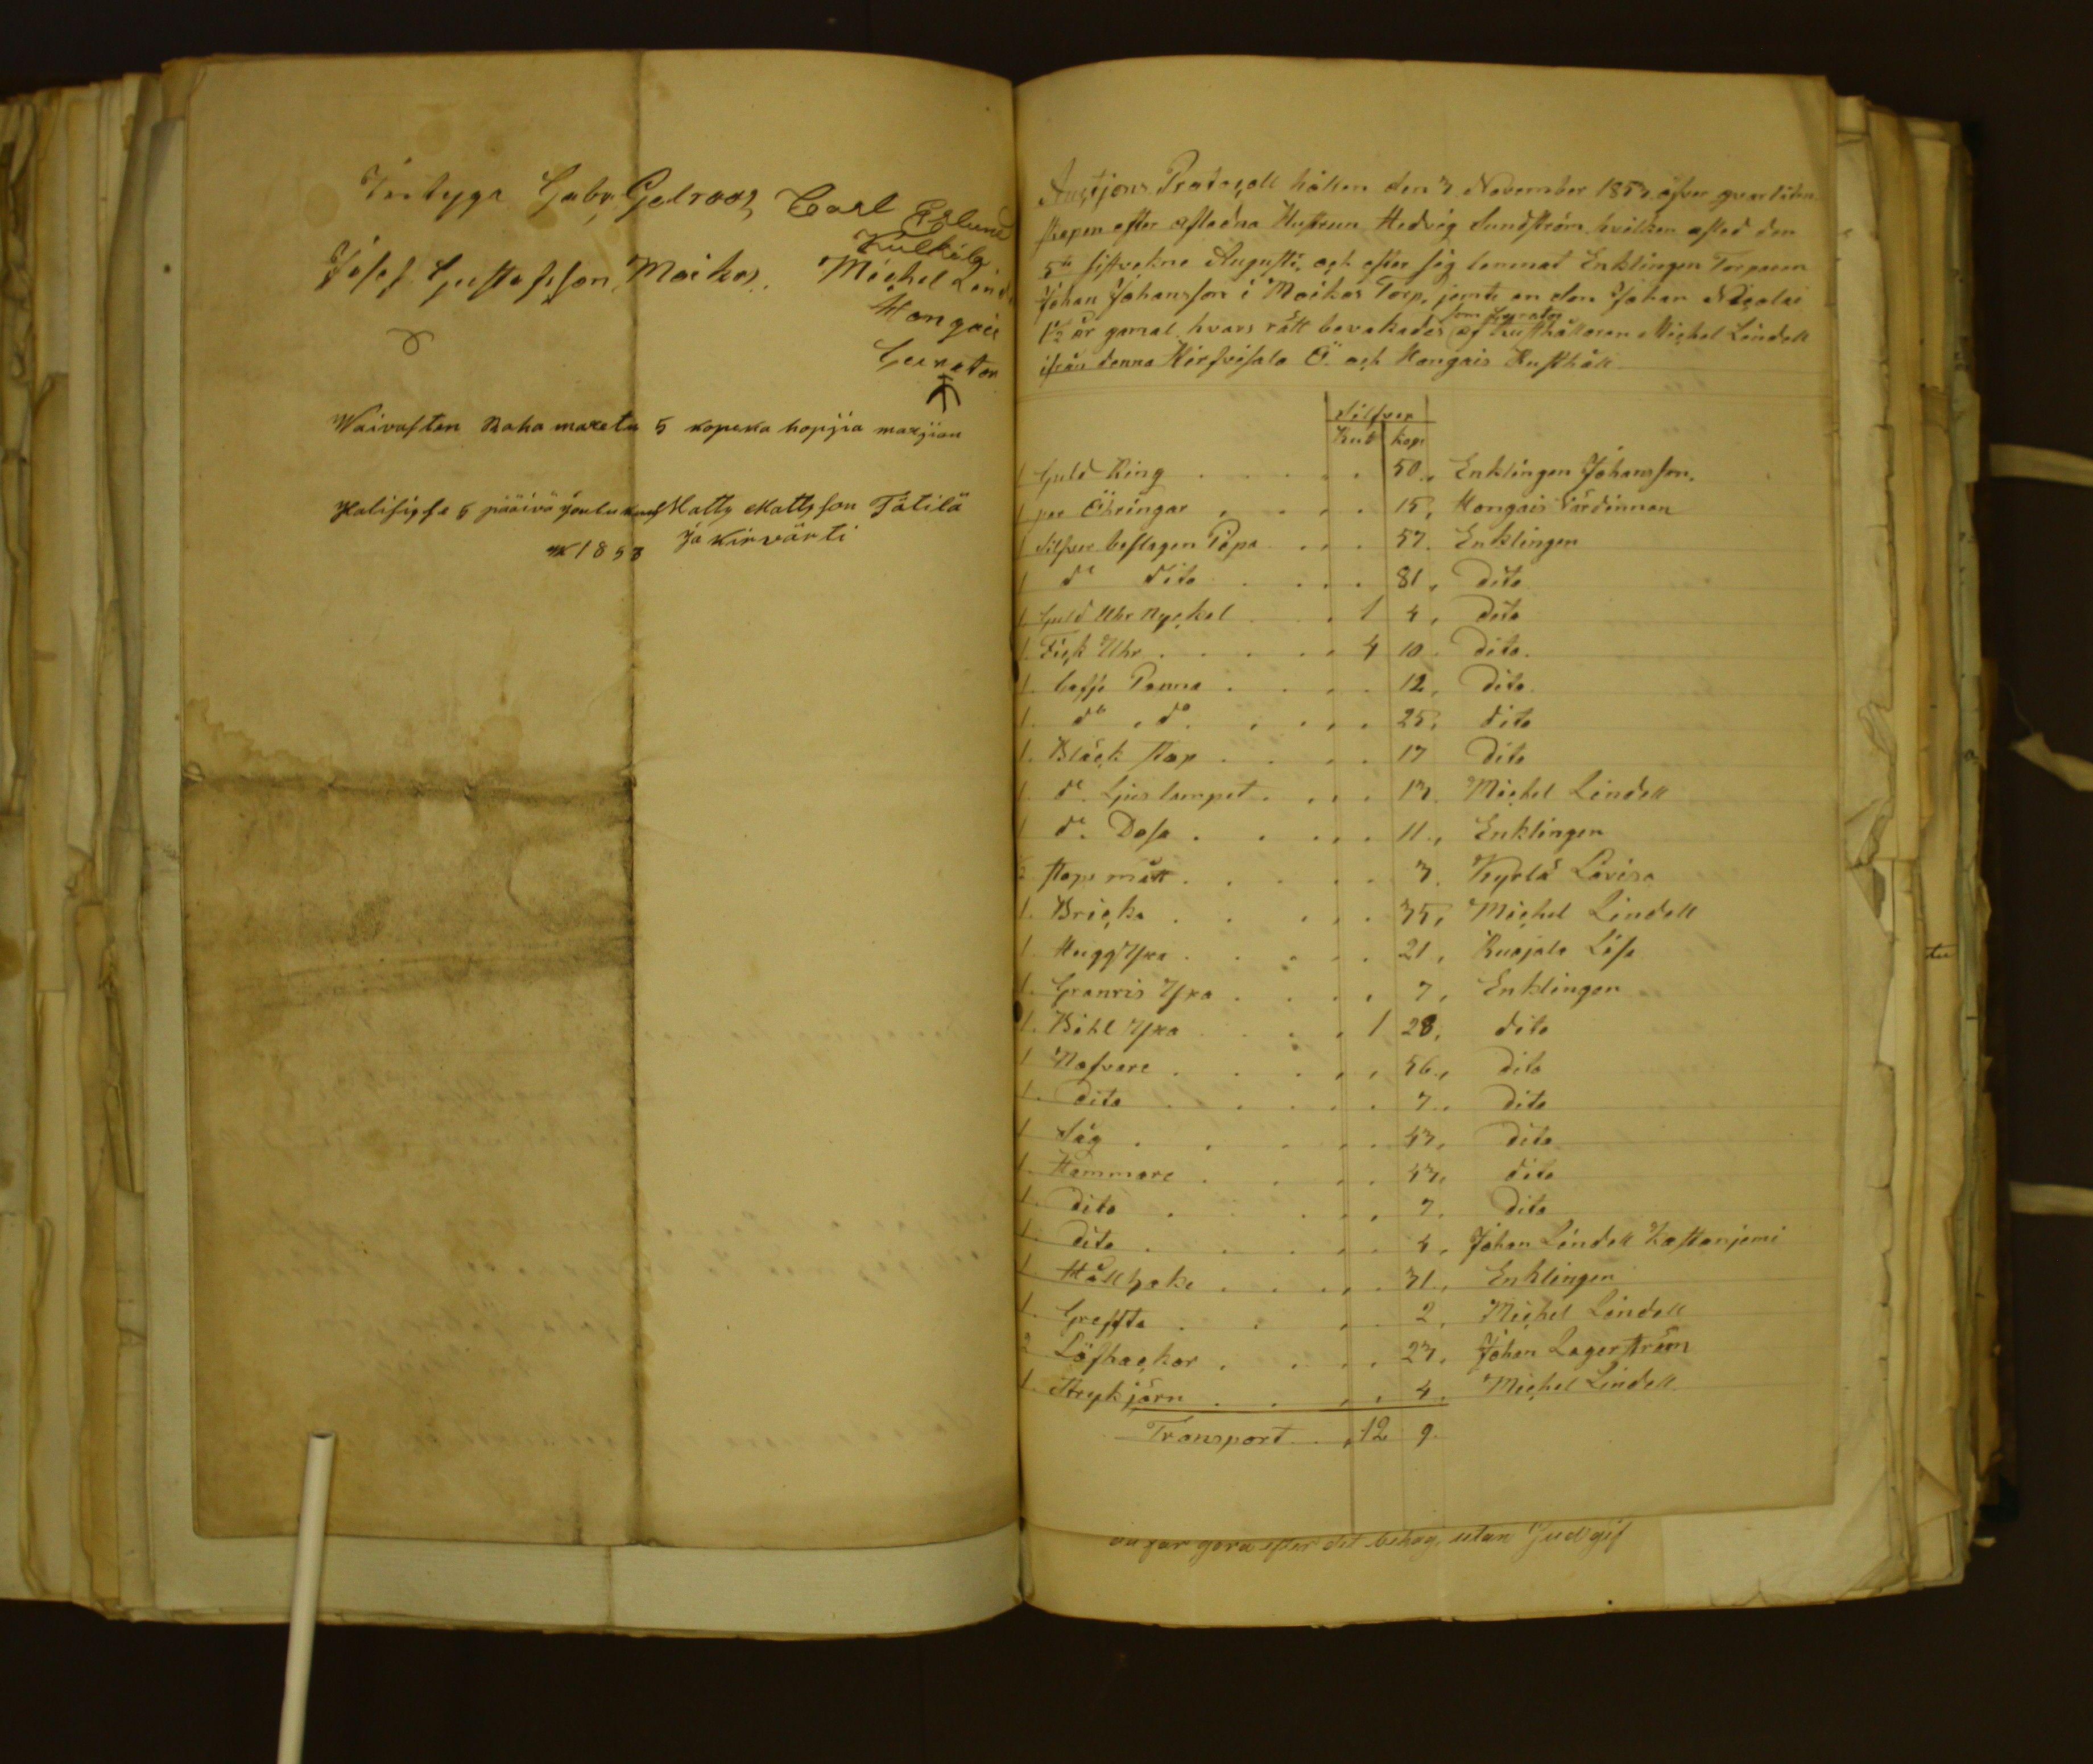 Intyga Gabr. Gelroos Carl Eslund
Kulkila
Josef Gustafsson, Moikos. Michel Lind
Hongais
Curator
Waivasten Raha maxetu 5 kopeka hopjia marjian
Halisisse 5 päivä joulu Matts Mattsson Tätilä
1853 ja Kirvärti
Auctjons Protocoll hållen den 3 November 1853 öfver qvarlåten
skapen efter aflednа Hustrun Hedvig Sundström hvilken afled den
5te sistvekne Augusti, och efter sig lemnat Enklingen Torparen
Johan Johansson i Moikos Torp, jemte en Son Johan Nicolai
1 1/2 år gamal, hvars rätt bevakades som Curator af Rusthållaren Michel Lindell
ifrån denna Hirfvisalo Ö och Hongais Rusthåll
Silfver
Rub kop
1 Guld Ring . . . . . 50., Enklingen Johansson.
1 par Öhringar . . . . 15, Hongais Värdinnan
1 Silfver beslagen Pipa . . . 57. Enklingen
1 do dito . . . . 81, dito
1. Guld Uhr Nyckel . . 1 4, dito
1. Fick Uhr . . . . . 4 10. dito.
1. Caffe Panna . . . . 12, dito.
1. do, do. . . . . 25, dito
1. Bläck stop . . . . 17 dito
1 do. Ljus lampet . . . . 13. Michel Lindell
1 do. Dosa . . . . . 11., Enklingen
1/2 stops mått . . . . . 3. Kyrlä Lovisa
1. Bricka . . . . . 35, Michel Lindell
1. Hugg Yxa . . . . . 21, Ruojala Lisa
1. Granris Yxa . . . . 7, Enklingen
1. Bihl Yxa . . . . 1 28, dito
1 Nafvare . . . . . 56., dito
1. dito . . . . . 7., dito
1 Såg . . . . . 43, dito
1. Hammare . . . . 43, dito
1. dito . . . . . 7. dito
1. dito . . . . . 4, Johan Lindell Kastanjemi
1 Håll hake . . . . . 31., Enklingen
1. Greffta . . . . 2, Michel Lindell
2 Löfhackor . . . . 23, Johan Lagerström
1. Strykjärn . . . . 4. Michel Lindell
Transport . . , 12 9.
du får göra efter det behag, utan